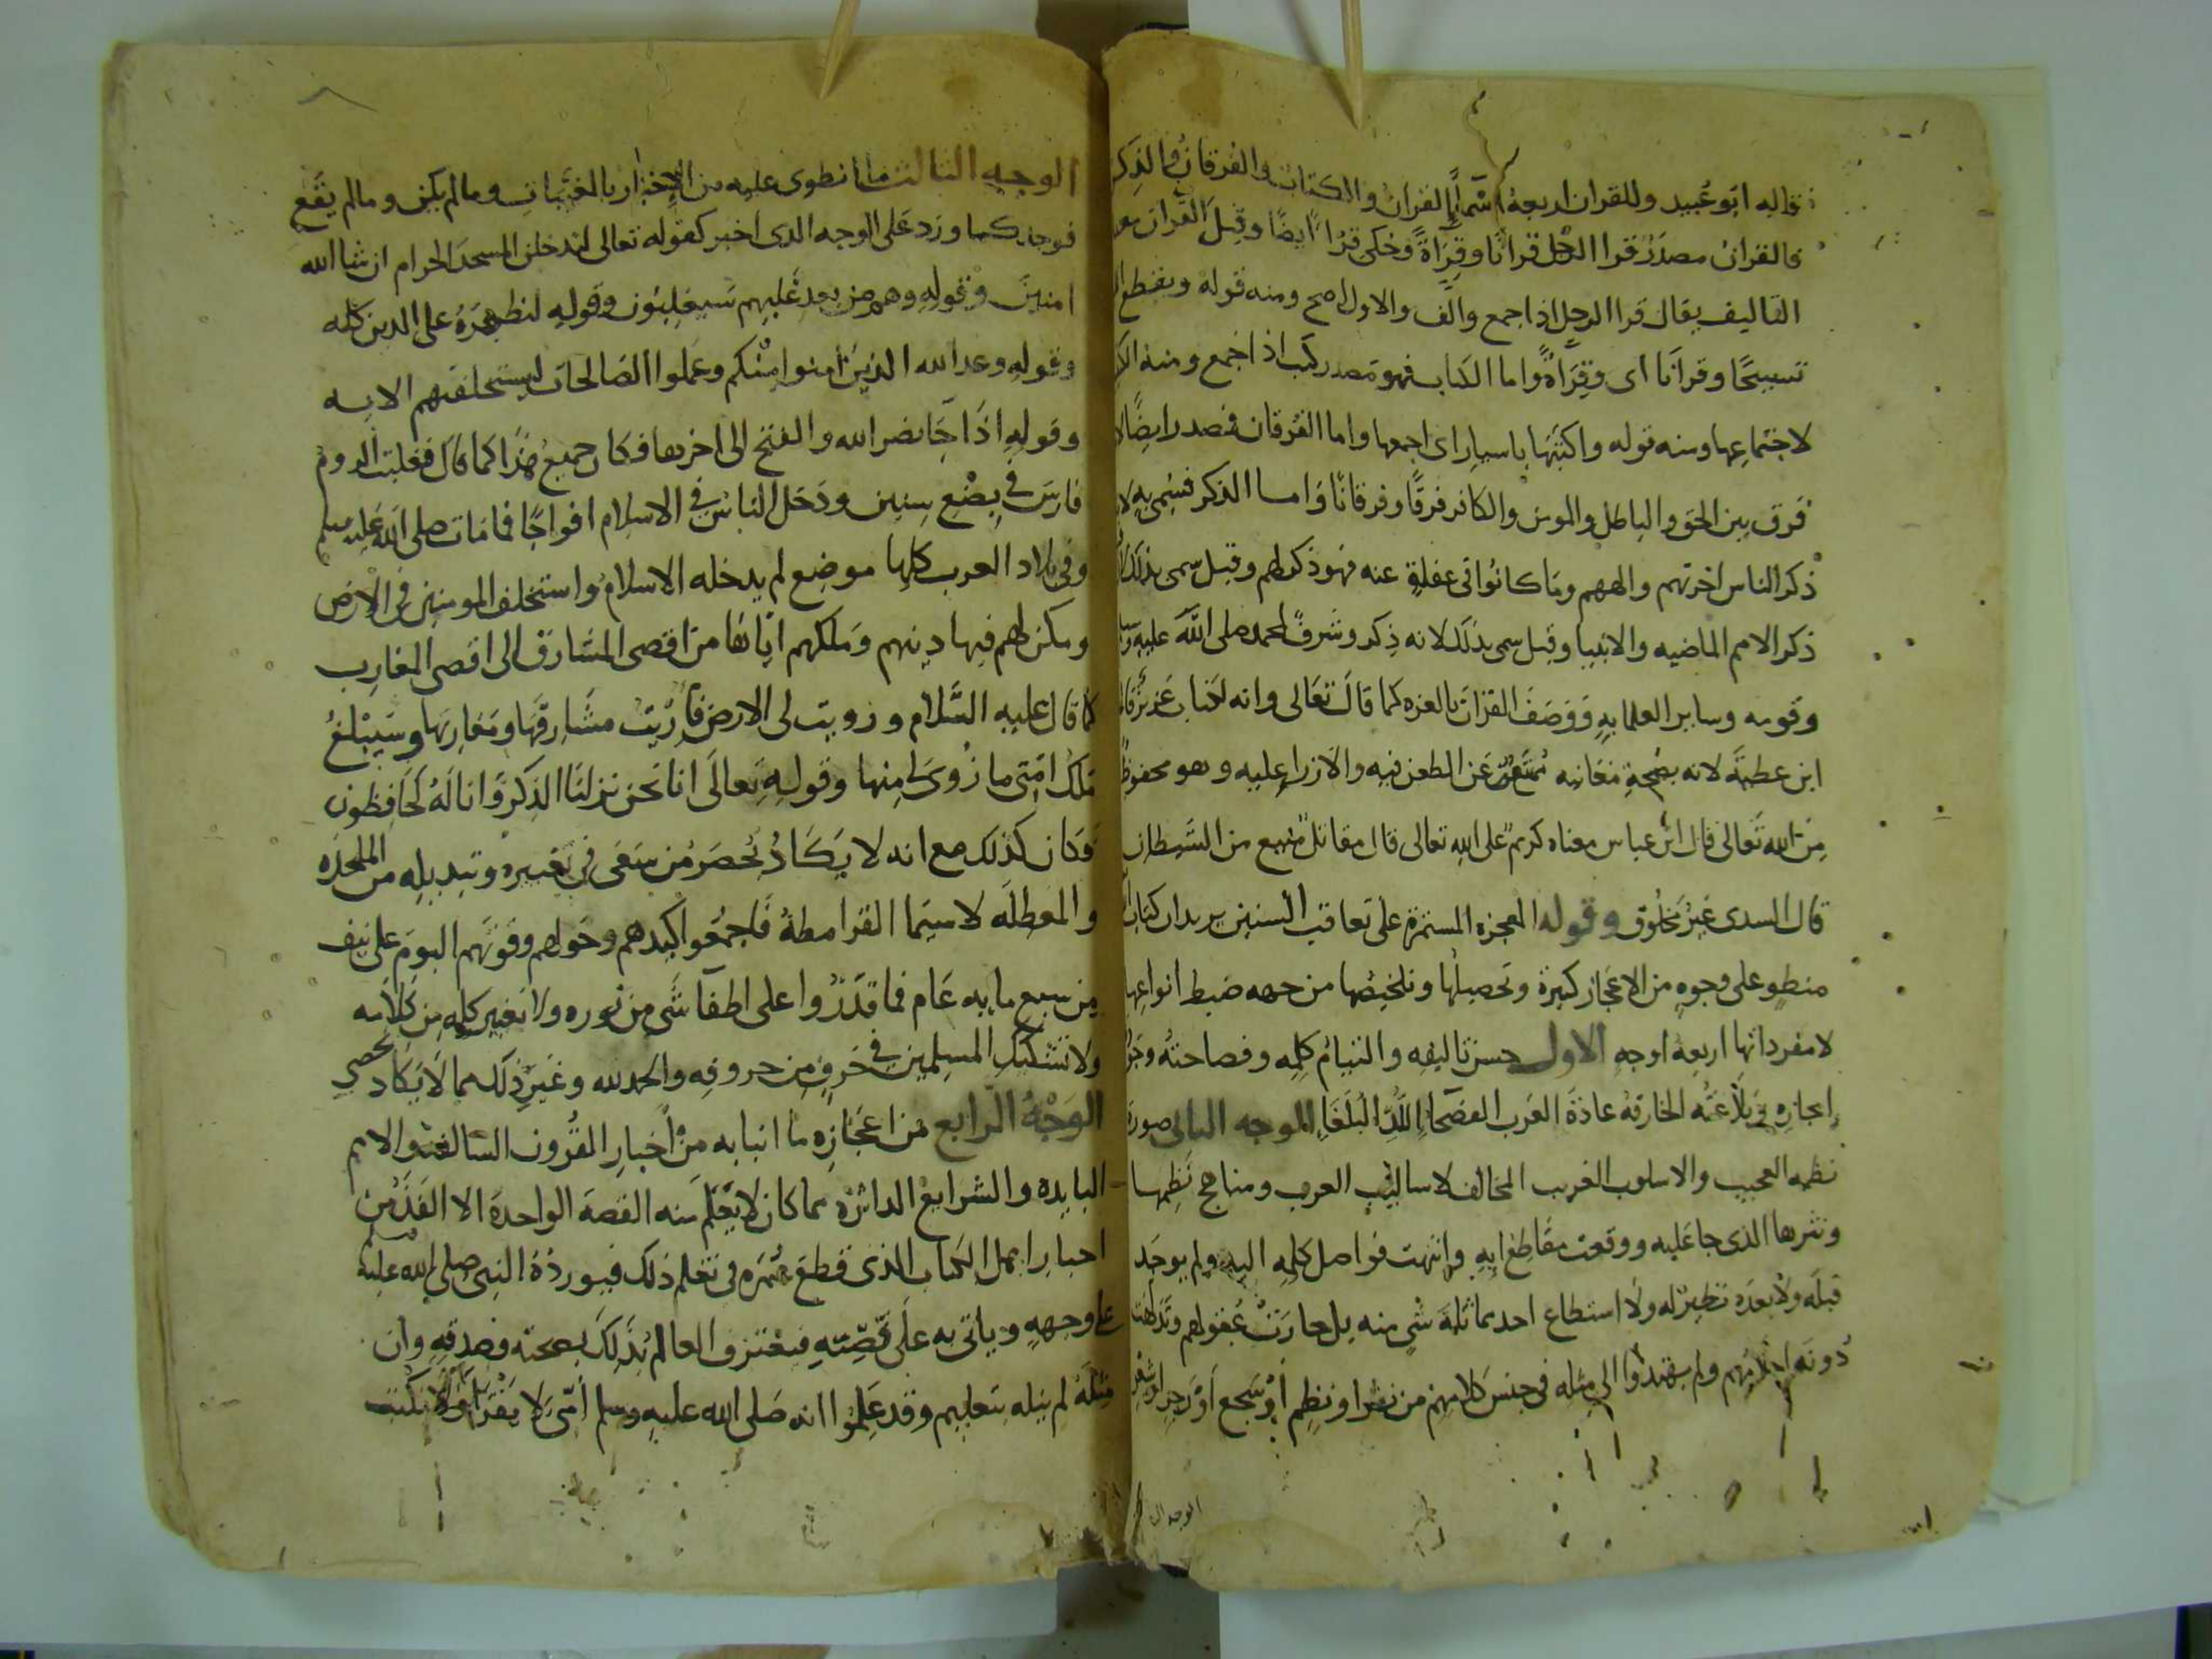 قاله ابو عُبيد وللقران اربعة اسماءٍ القرانُ والكتابُ والفرقانُ والذكر
فالقران مصدرُ قرا الرجل قرانًا وقِرَاةً وحُكى قرُا ايضًا وقيل القران معن
التاليف يقال قرا الرجل اذا جمع والف والاول اصح ومنه قوله
تسبيحًا وقرآنًا اى وقِرَاةً واما الكتاب فهو مصدر كتب اذا جمع ومنه
لاجتماعها ومنه قوله واكتبها باسيار اى اجمعها واما الفرقان فمصدر ايضًا
فرق بين الحق والباطل والمومن والكافر فرقًا وفرقانًا واما الذكر فسُمى به
ذكر الناس اخرتهم والههم وما كانوا فى غفلةٍ عنه فهو ذكر لهم وقيل سمى بذلك
ذكر الامم الماضيه والانبيا وقيل سمى بذلك لانه ذِكر وشرفٌ لمحمد صلى الله عليه وسلم
وقومه وساير العلما بهِ وَوَصَفَ القرانَ بالعزه كما قالَ تعَالى وانه لكتاب عَزيزٌ قال
ابن عطيةَ لانه بصحةِ معَانيه مُمتَنِعٌ عَن الطعن فيه والازراِ عليه وهو محفوظٌ
مِنَ الله تَعالى قال ابن عباس معناه كريمٌ على اللهِ تعالى قال مقاتل منيع من الشيطان
قال السدى غيرُ مخلُوق وقوله المعجزه المستمرة على تعاقب السنين يريد ان كتاب
منطوٍ على وجوهٍ من الاعجاز كثيرة وتحصيلُها وتلخيصُها من جهه ضبط انواعِها
لا مفرداتها اربعهُ اوجهٍ الاول حسن تاليفه والتيامُ كلِمِه وفصاحتُه
إيجازِهِ وبَلاغتُه الخارقة عادةَ العَرب الفصَحاءِ اللُّدِّ البُلَغَاءِ الوجه الثانى صورة
نظمه العجيب والاسلوب الغريب المخالف لاساليب العرب ومناهج نَظمِها
ونثرها الذى جا عَليه ووقعت مقَاطِعُ ايهِ وانتهت فواصل كلِمِه اليه ولم يوجَد
قبلَه ولا بَعدَه نظيرٌ له ولا استطاع احد مماثلةَ شىٍ منه بل حارَتْ عُقولهم وتَدَلهت
دُونَه احلامُهم ولم يهتدوا الى مثله فى جنسِ كلامِهم من نثرٍ او نظمٍ اوْ سَجع اوْ رَجزٍ او شعرٍ
الوجه الثا
الوجه الثالث ما انطوى عليه من الاخبار بالمغَيَّبات وما لم يكن وما لم يقَع
فوجد كما ورَد عَلى الوجه الذى اخبر كقوله تعالى لتدخلن المسجدَ الحرام ان شا الله
امنينَ وقولهِ وهم من بعد غَلَبِهم سَيغلِبُون وقولِه لنظهِرَهُ على الدين كلِّه
وقولهِ وعد الله الذين امنوا مِنْكم وعَملوا الصَالحات ليستخلفنهم الايه
وقولِهِ اذَا جَا نصر الله والفتح الى اخرها فكان جميعُ هَذَا كما قال فغلبت الروم
فارسَ فى بِضْع سِنين ودَخَل الناسُ فى الاسلام افواجًا فما مَات صلى الله عليه وسلم
وفى بلاد العرب كلها موضع لم يدخله الاسلام واستخلف المومنين فى الارض
ومكن لهم فيها دينهم وَملكهم اياها من اقصى المشَارق الى اقصى المغارِب
كما قال عليه السَّلام وزويت لى الارض فاُرِيتُ مشَارِقَها ومَغارِبَها وسَيَبْلغُ
مُلْكُ امَّتِى ما زُوىَ لى مِنها وقولهِ تعالَى انا نَحن نزلنَا الذِّكرَ وَانا لَهُ لَحَافِظُون
فَكان كذلك مع انه لا يَكَادُ يُحصَرُ مَن سَعَى فى تغييره وتبديلِه من الملحدَه
والمعَطلَه لا سيَما القرامطة فَاجمَعُوا كيدهم وحَولهم وقوتهم اليومَ على نيف
من سبع مايه عَام فما قدَرُوا على اطفاَ شَىٍ مِن نُوره ولا تغيير كلِمهٍ مِن كَلامه
ولا تشكيك المسلمين فى حَرفٍ من حروفِه والحمد لله وغَيرُ ذلك مما لَا يَكَاد يحصى
الوَجْهُ الرابع من اعجَازِهِ ما انبا به مِنْ اخبارِ القُرونِ السالفة والامم
البايده والشرايع الداثرة مما كان لا يَعْلَم منه القصةَ الواحدة الا الفَذُّ مِن
احبارِ اهل الكتاب الذى قطعَ عُمُرَه فى تَعَلم ذلك فيوردهُ النبى صلى الله عليه وسلم
على وجههِ وياتى به عَلَى نَصِّهِ فيَعْترف العالمُ بذَلِكَ بصحته وصدقهِ وان
مثلَهُ لم ينله بتعليم وقد عَلِمُوا انه صَلى الله عليه وسلم اُمّى لا يَقْرَا ولا يَكْتُب